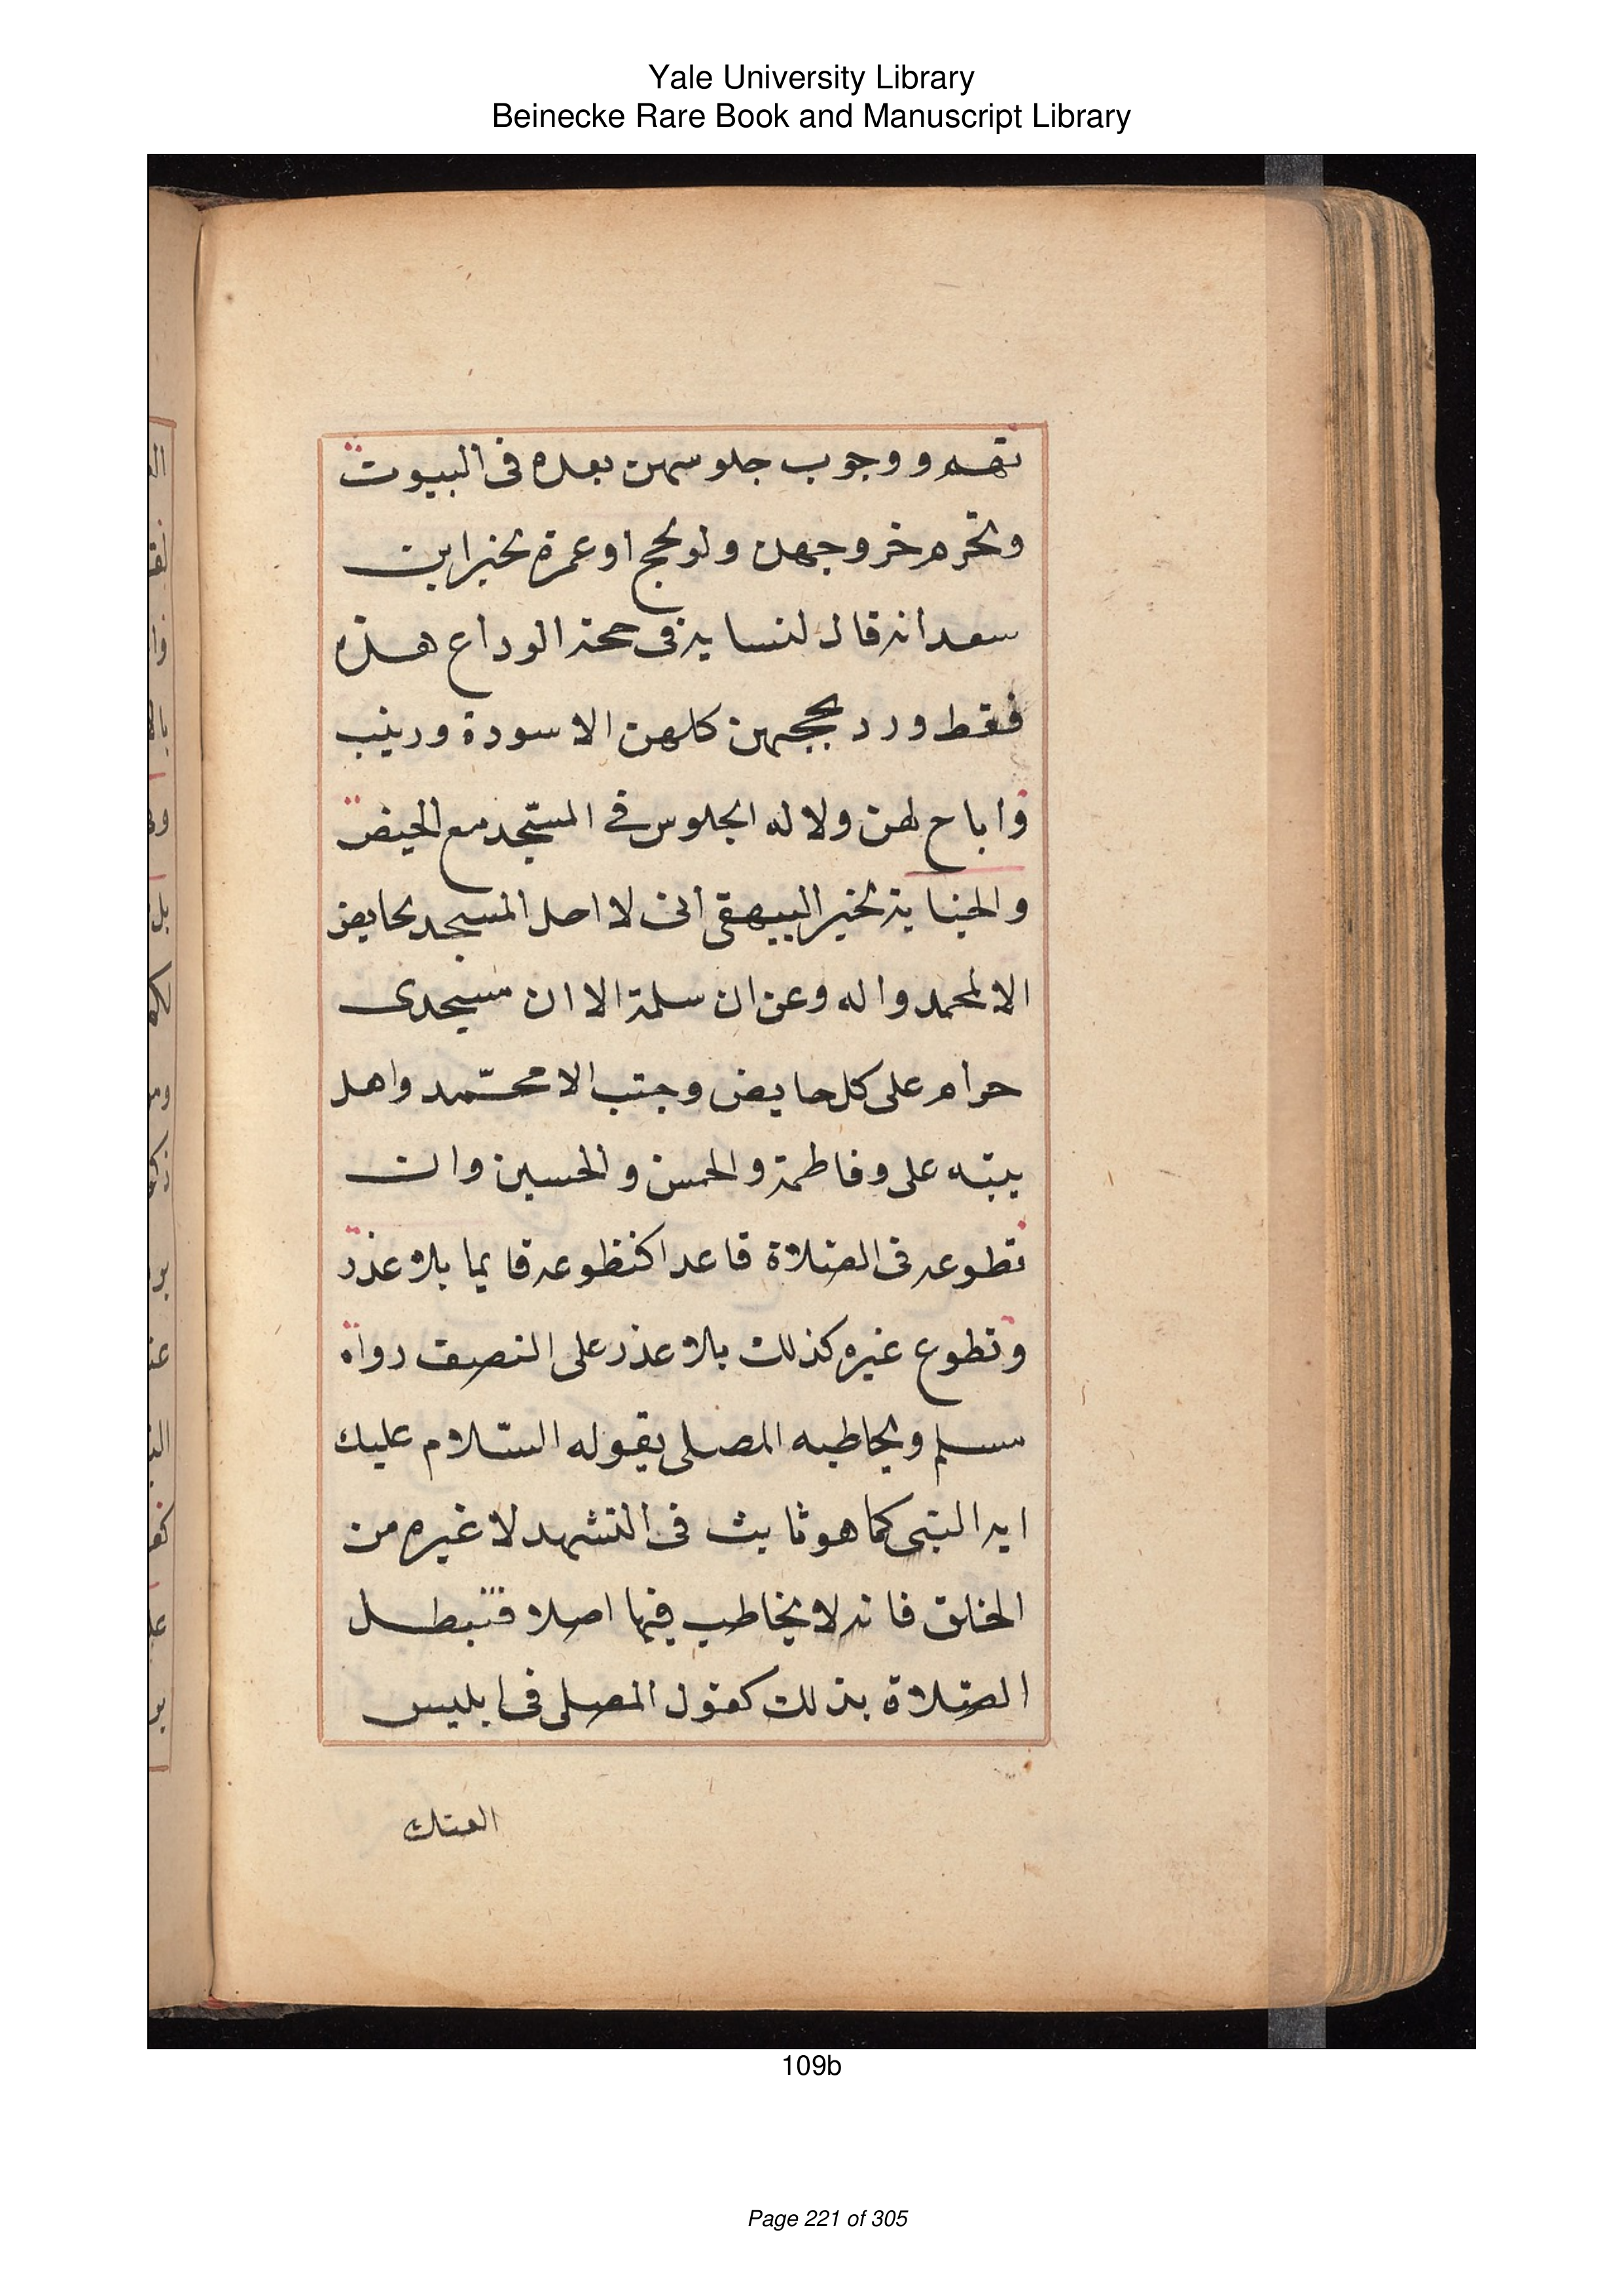 Yale University Library
Beinecke Rare Book and Manuscript Library
تهم ووجوب جلوسهن بعده فى البيوت
وتحرم خروجهن ولو لحج او عمرة لخبر ابن
سعد انه قال لنسايه فى حجة الوداع هذه
فقط ورد بحجهن كلهن الا سودة وزينب
واباح لهن ولاله الجلوس فى المسجد مع الحيض
والجنابة لخبر البيهقى انى لا احل المسجد لحايض
الا لمحمد واله وعن ان سلمة الا ان مسجدى
حرام على كل حايض وجنب الا محمّد واهل
بيته على وفاطمة والحسن والحسين وان
تطوعه فى الصّلاة قاعدا كتطوعه قايما بلا عذر
وتطوع غيره كذلك بلا عذر على النصف رواه
مسلم ويخاطبه المصلى بقوله السّلام عليك
ايه النبى كما هو ثابت فى التشهد لا غيره من
الخلق فانه لا يخاطب فيها اصلا فتبطل
الصّلاة بذلك كقول المصلى فى ابليس
العنك
109b
Page 221 of 305